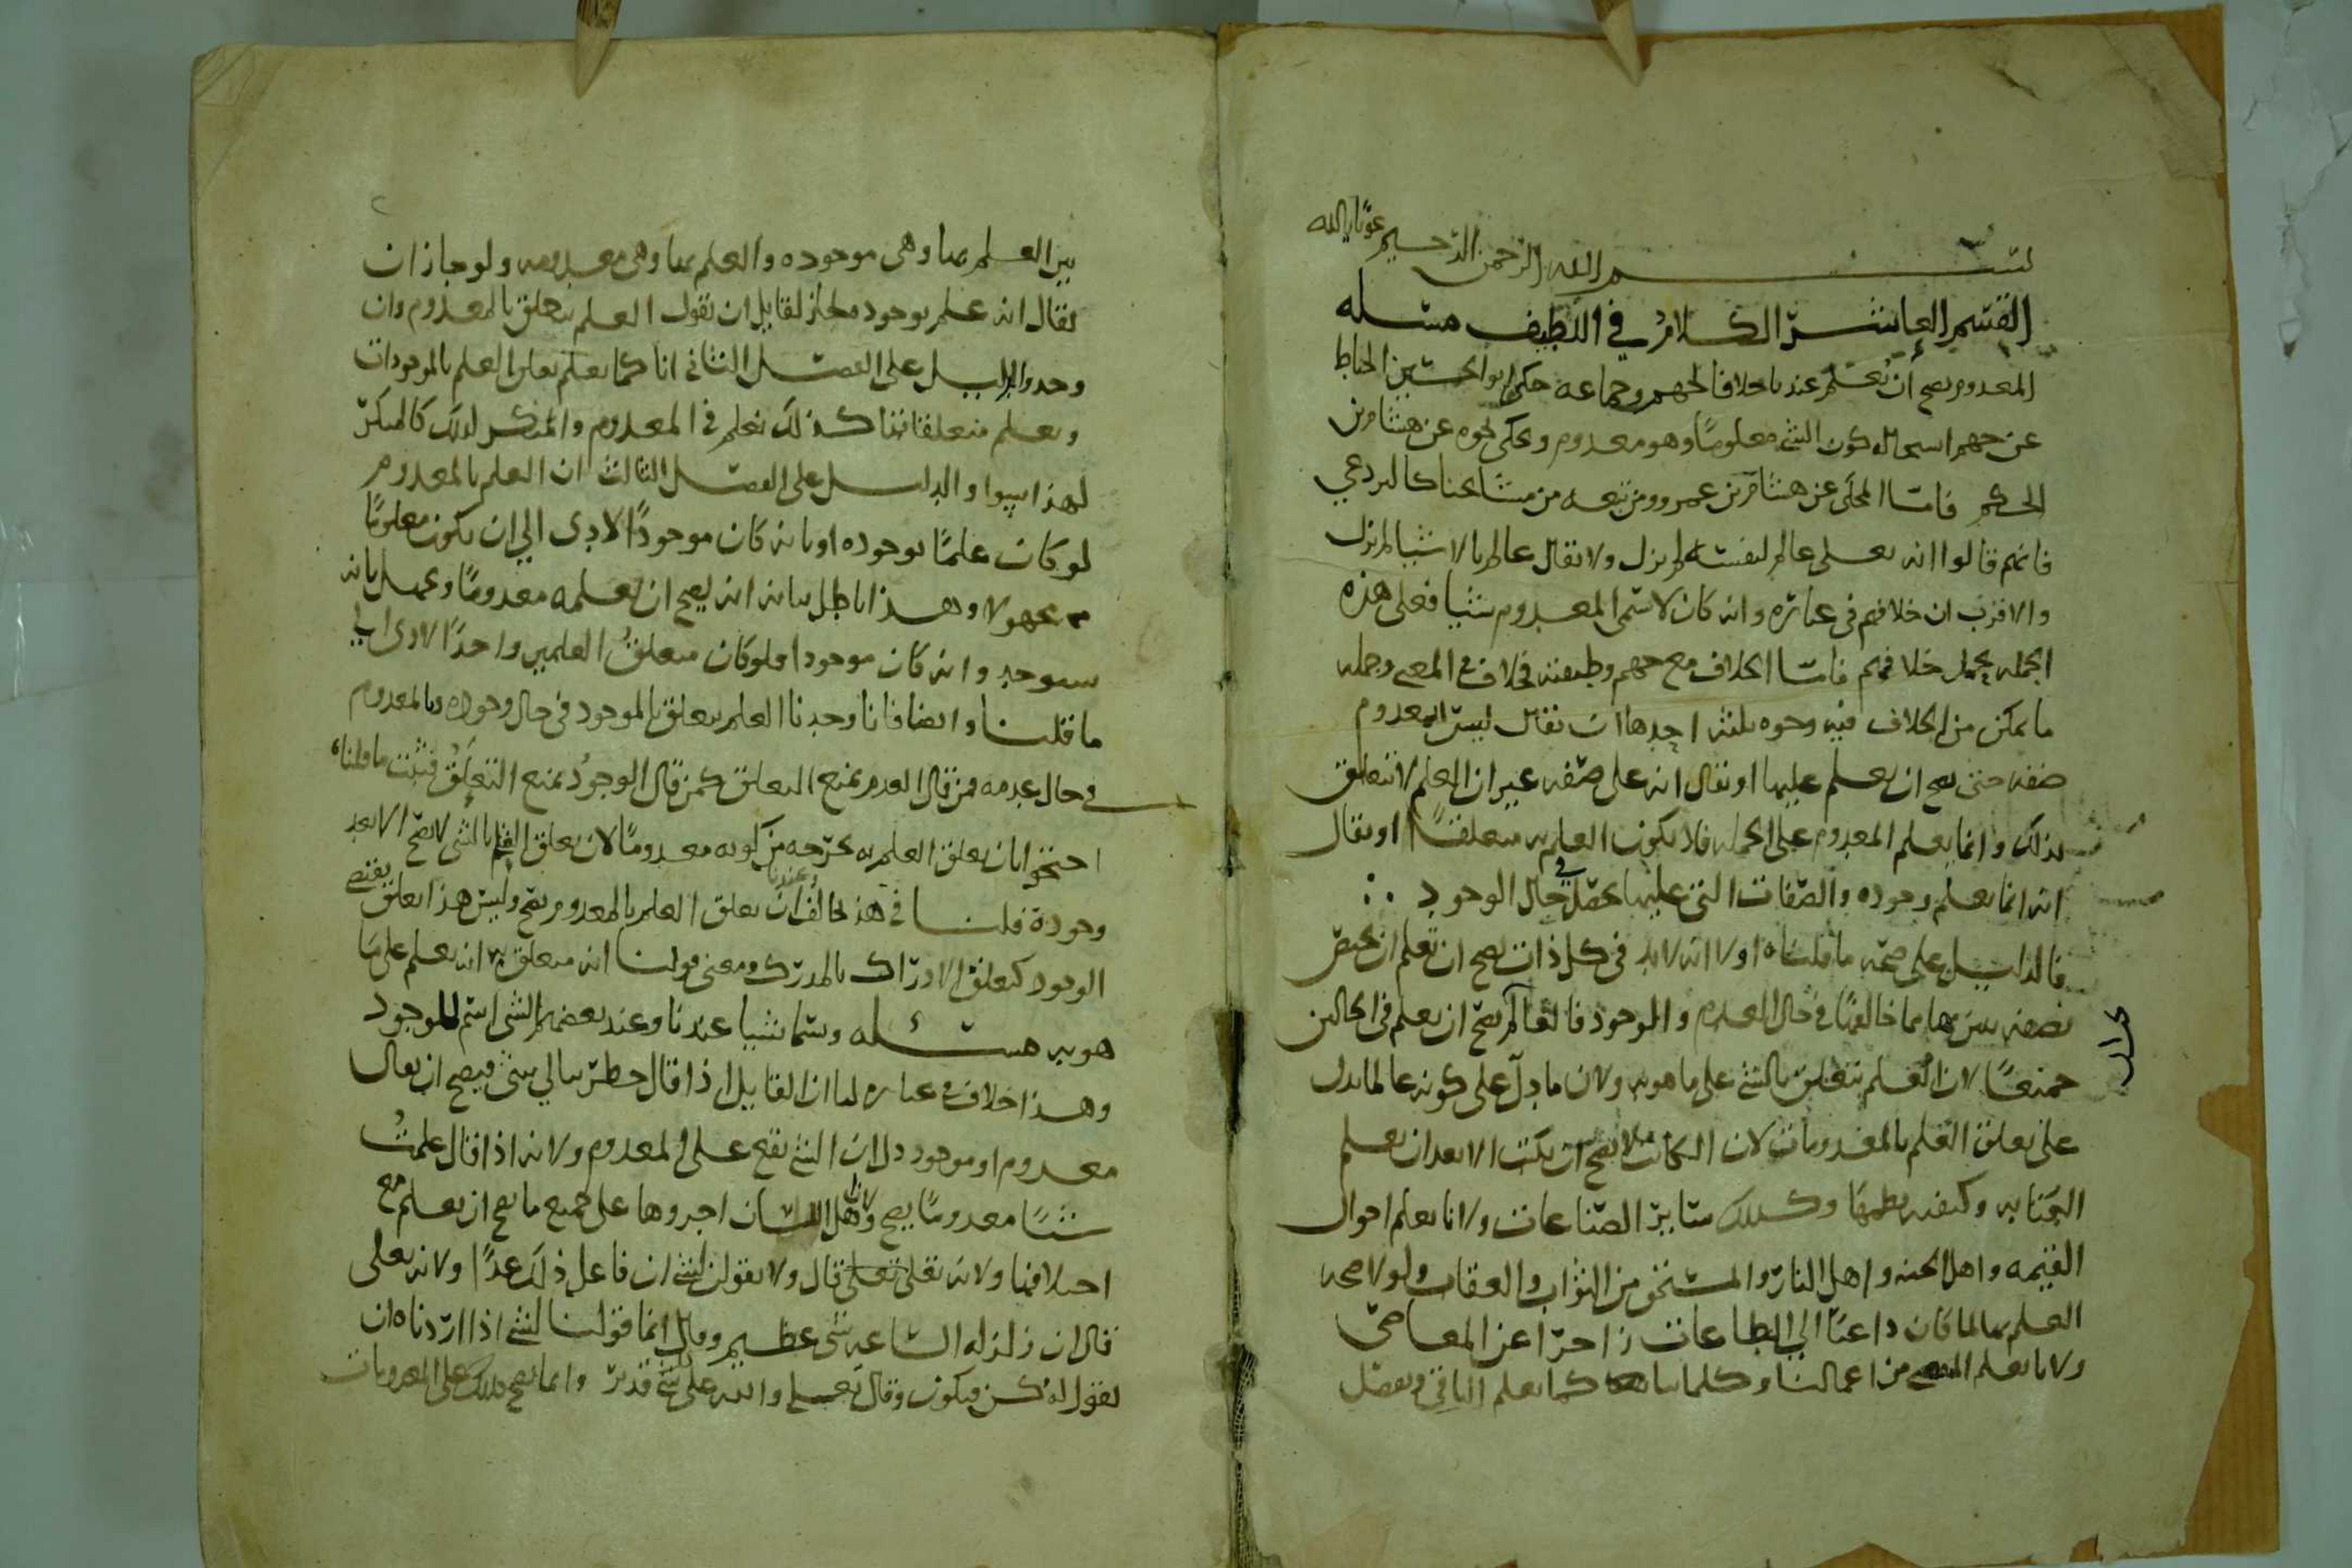 بسم الله الرحمن الرحيم عونك يا الله
القسم العاشر الكلام في اللطيف مسئله
المعدوم يصح أن يُعلم عندنا خلافا لجهم وجماعه حكى ابو الحسين الخياط
عن جهم استحاله كون الشي معلومًا وهو معدوم وحكى نحوه عن هشام بن
الحكم فامّا المحكى عن هشام بن عمرو ومن تبعه من مشايخنا كالبردعي
فانهم قالوا انه تعلى عالم لنفسه لم يزل ولا يقال عالم بالاشيا لم يزل
والاقرب ان خلافهم في عباره وانه كان لا يسمى المعدوم شيا فعلى هذه
الجمله يحمل خلافهم فامّا الخلاف مع جهم وطبقته فخلاف في المعنى وجمله
ما يمكن من الخلاف فيه وجوه ثلثه احدها ان يقال ليس للمعدوم
صفه حتى يصح ان يعلم عليها او يقال انه على صفه غير ان العلم لا يتعلق
بذلك وانما يعلم المعدوم على الجمله فلا يكون العلم به متعلقًا او يقال
انه انما يعلم وجوده والصفات التي عليها يحصل في حال الوجود
فالدليل على صحه ما قلناه اولا انه لا بد في كل ذات يصح ان تعلم ان يختص
بصفه يبين بها مما خالفها في حال العدم والموجود فالقا لم يصح ان يعلم في الحالين
جميعًا لان العلم يتعلق بالشي على ما هو به ولان ما دلّ على كونه عالما يدل
على تعلق العلم بالمعدومات لان الكاتب لا يصح ان يكتب الا بعد ان يعلم
الكتابه وكيفيه نظمها وكذلك سائر الصناعات ولانا نعلم احوال
القيمه واهل الجنه واهل النار والمستحق من الثواب والعقاب ولولا صحه
العلم بها لما كان داعيًا الى الطاعات زاجرا عن المعاصي
ولانا نعلم من اعمالنا وكلامنا كما نعلم الباقي ونفصل
بين العلم بها وهى موجوده والعلم بها وهى معدومه ولو جاز ان
يقال انه علم بوجودها لجاز لقايل ان يقول العلم يتعلق بالمعدوم وان
وجد والدليل على الفصل الثاني انا كما نعلم تعلق العلم بالموجودات
ونعلم متعلقاتنا كذلك نعلم في المعدوم والمنكر لذلك كالمنكر
لهذا سوا والدليل على الفصل الثالث ان العلم بالمعدوم
لو كان علمًا بوجوده او بانه كان موجودًا لادى الى ان يكون معلومًا
مجهولا وهذا باطل بيانه انه يصح ان يعلمه معدومًا ويجهل بانه
سيوجد وانه كان موجودا فلو كان متعلقُ العلمين واحدًا لادى الى
ما قلنا وايضا فانا وجدنا العلم يتعلق بالموجود في حال وجوده وبالمعدوم
في حال عدمه فمن قال العدم يمنع التعلق كمن قال الوجود يمنع التعلق فثبت ما قلنا
احتجوا بان تعلق العلم به يخرجه من كونه معدومًا لان تعلق العلم بالشي لا يصح الا بعد
وجوده قلنا في هذا نخالف وعندنا ان تعلق العلم بالمعدوم يصح وليس هذا تعلق يقتضي
الوجود كتعلق الادراك بالمدرك ومعنى قولنا انه متعلق به انه يعلم على ما
هو به مسئله ويسمّا شيا عندنا وعند بعضهم الشى اسم للموجود
وهذا خلاف في عباره لنا ان القايل اذا قال خطر ببالي شي فيصح ان يقال
معدوم او موجود دل ان الشي يقع على المعدوم ولانه اذا قال علمتُ
شيئًا معدومًا يصح ولان اهل اللسان اجروها على جميع ما يصح ان يعلم مع
اختلافها ولانه تعلى قال ولا تقولن لشي ان فاعل ذلك غدًا ولانه تعلى
قال ان زلزله الساعه شي عظيم وقال انما قولنا لشي اذا اردناه ان
نقول له كن فيكون وقال تعلى والله على كل شي قدير وانما يصح ذلك على المعدومات